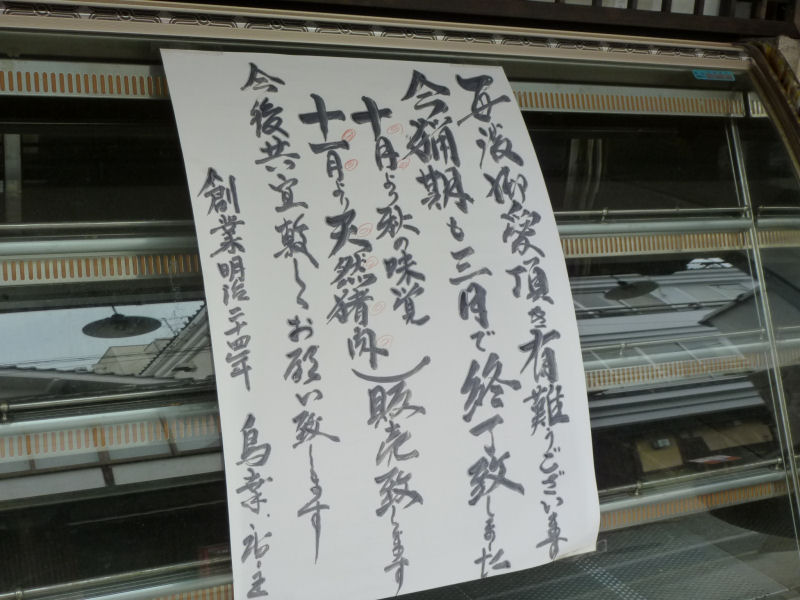 毎度御愛顧頂き有難うございます
今猟期も三月で終了致しました
十月より秋の味覚
十一月より天然猪肉
販売致します
今後共宜敷しくお願い致します
創業明治二十四年